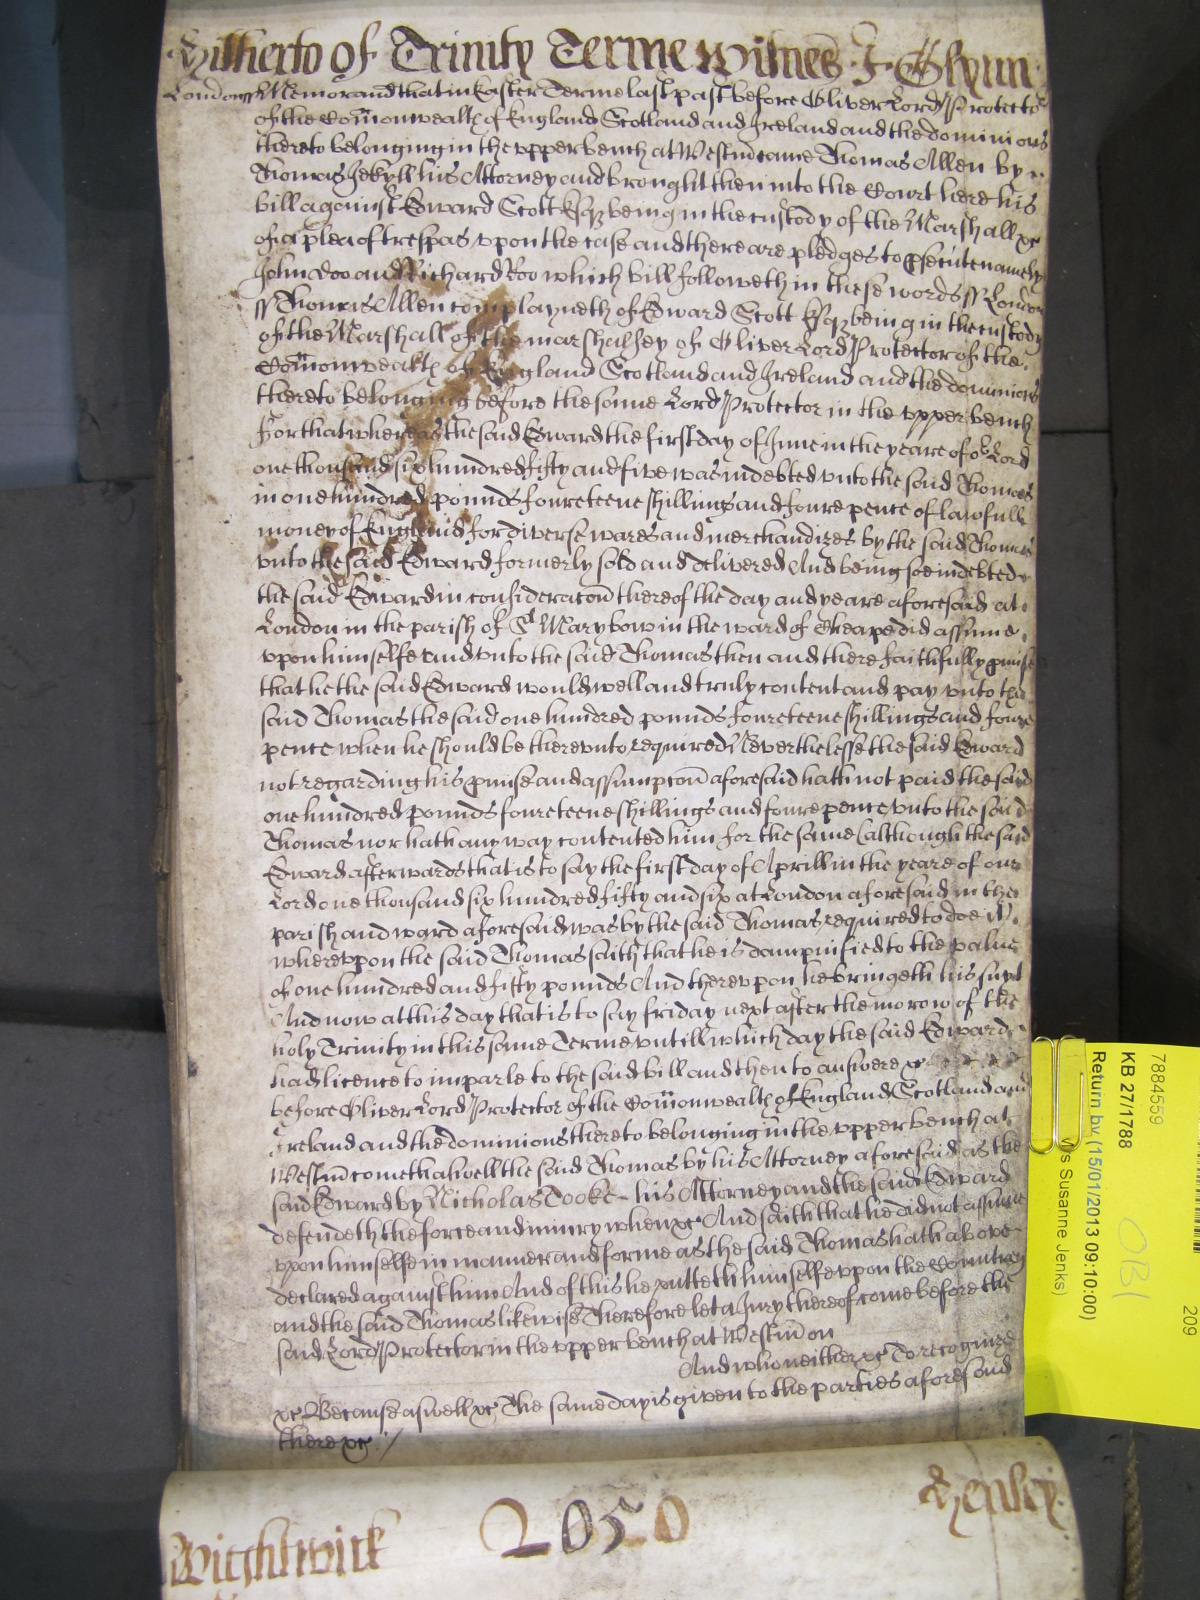 Hitherto of Trinity Terme Witnes J. Glynn
London ss Memorand that in Easter Terme last past before Oliver Lord Protector
of the Com̄onwealth of England Scotland and Ireland and the dominions
thereto belonging in the vpper bench at Westm̄ came Thomas Allen by
Thomas Jekyll his Attorney and brought then into the Court here his
bill against Edward Scott Esqz being in the custody of the Marshall xc̃
of a plea of trespas vpon the case and there are pledges to p̱secute namely
John Doo and Richard Roo which bill followeth in these words ss London
ss Thomas Allen complayneth of Edward Scott Esqz being in the custody
of the Marshall of the marshalsey of Oliver Lord Protector of the
Com̄onwealth of England Scotland and Ireland and the dominions
thereto belonging before the same Lord Protector in the vpper bench
For that whereas the said Edward the first day of June in the yeare of oʳ Lord
one thousand six hundred fifty and five was indebted vnto the said Thomas
in one hundred pounds foureteene shillings and foure pence of lawfull
money of England for diverse wares and merchandizes by the said Thomas
vnto the said Edward formerly sold and delivered And being soe indebted
the said Edward in consideracon̄ thereof the day and yeare aforesaid at
London in the parish of Sᵗ Mary bow in the ward of Cheape did assume
vpon himselfe and vnto the said Thomas then and there faithfully p̱mise
that he the said Edward would well and truly content and pay vnto the
said Thomas the said one hundred pounds foureteene shillings and foure
pence when he should be therevnto required Neverthelesse the said Edward
not regarding his p̱mise and assumpcon̄ aforesaid hath not paid the said
one hundred pounds foureteene shillings and foure pence vnto the said
Thomas nor hath any way contented him for the same (although the said
Edward afterwards that is to say the first day of Aprill in the yeare of our
Lord one thousand six hundred fifty and six at London aforesaid in the
parish and ward aforesaid was by the said Thomas required to doe it)
wherevpon the said Thomas saith that he is dampnified to the value
of one hundred and fifty pounds And therevpon he bringeth his suyt
And now at this day that is to say friday next after the morow of the
holy Trinity in this same Terme vntill which day the said Edward
had licence to imparle to the said bill and then to answere xc̃
before Oliver Lord Protector of the Com̄onwealth of England Scotland and
Ireland and the dominions thereto belonging in the vpper bench at
Westm̄ come th aswell the said Thomas by his Attorney aforesaid as the
said Edward by Nicholas Cooke his Attorney and the said Edward
defendeth the force and iniury when xc̃ And saith that he did not assume
vpon himselfe in manner and forme as the said Thomas hath above
declared against him And of this he putteth himselfe vpon the Countrey
and the said Thomas likewise Therefore let a Jury thereof come before the
said Lord Protector in the vpper bench at Westm̄ on
And who neither xc̃ To recognize
xc̃ Because aswell xc̃ The same day is given to the parties aforesaid
there xc̃ /
Wightwick 2050 Henley
7884559
KB 27/1788
Return by (15/01/2013 09:10:00)
s Susanne Jenks)
OBI
209